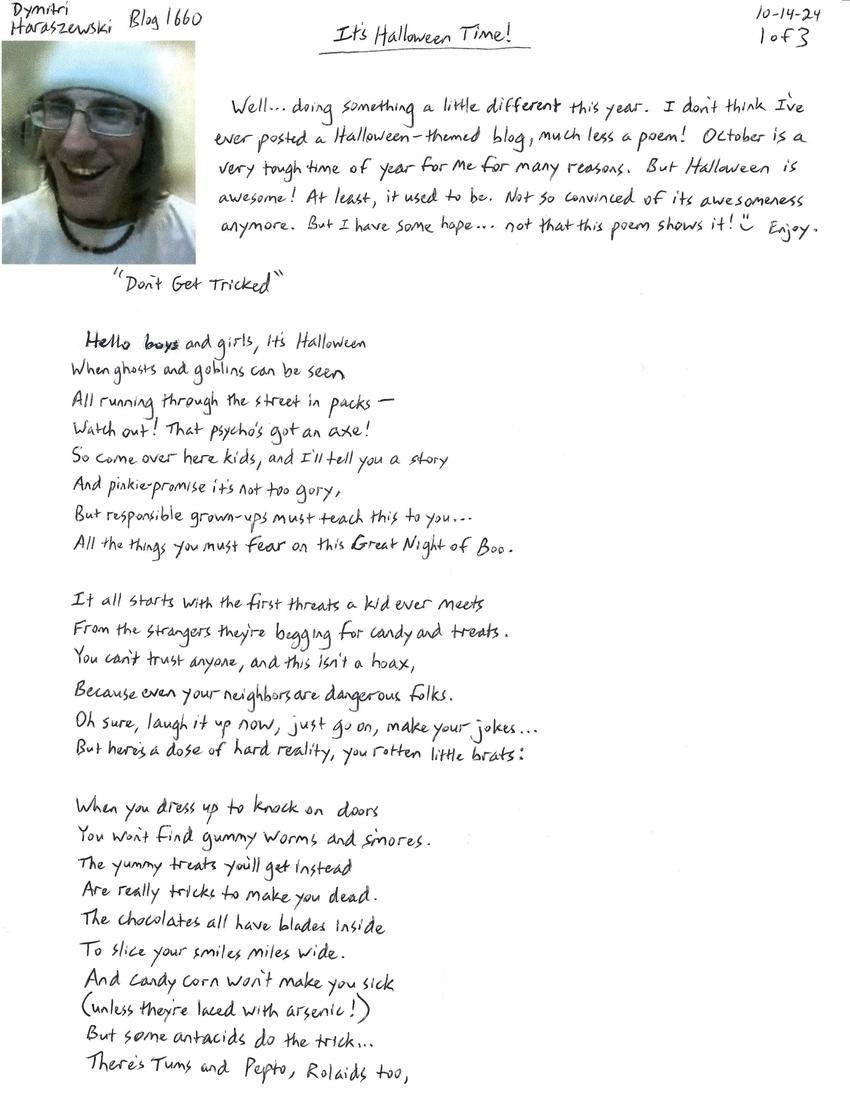 Dymitri
Haraszewski
Blog 1660
It's Halloween Time!
10-14-24
1 of 3
Well... doing something a little different this year. I don't think I've
ever posted a Halloween-themed blog, much less a poem! October is a
very tough time of year for me for many reasons. But Halloween is
awesome! At least, it used to be. Not so convinced of its awesomeness
anymore. But I have some hope... not that this poem shows it! Enjoy.
"Don't Get Tricked"
Hello boys and girls, it's Halloween
When ghosts and goblins can be seen
All running through the street in packs —
Watch out! That psycho's got an axe!
So come over here kids, and I'll tell you a story
And pinkie-promise it's not too gory,
But responsible grown-ups must teach this to you...
All the things you must fear on this Great Night of Boo.
It all starts with the first threats a kid ever meets
From the strangers they're begging for candy and treats.
You can't trust anyone, and this isn't a hoax,
Because even your neighbors are dangerous folks.
Oh sure, laugh it up now, just go on, make your jokes...
But here's a dose of hard reality, you rotten little brats:
When you dress up to knock on doors
You won't find gummy worms and s'mores.
The yummy treats you'll get instead
Are really tricks to make you dead.
The chocolates all have blades inside
To slice your smiles miles wide.
And candy corn won't make you sick
(unless they're laced with arsenic!)
But some antacids do the trick...
There's Tums and Pepto, Rolaids too,